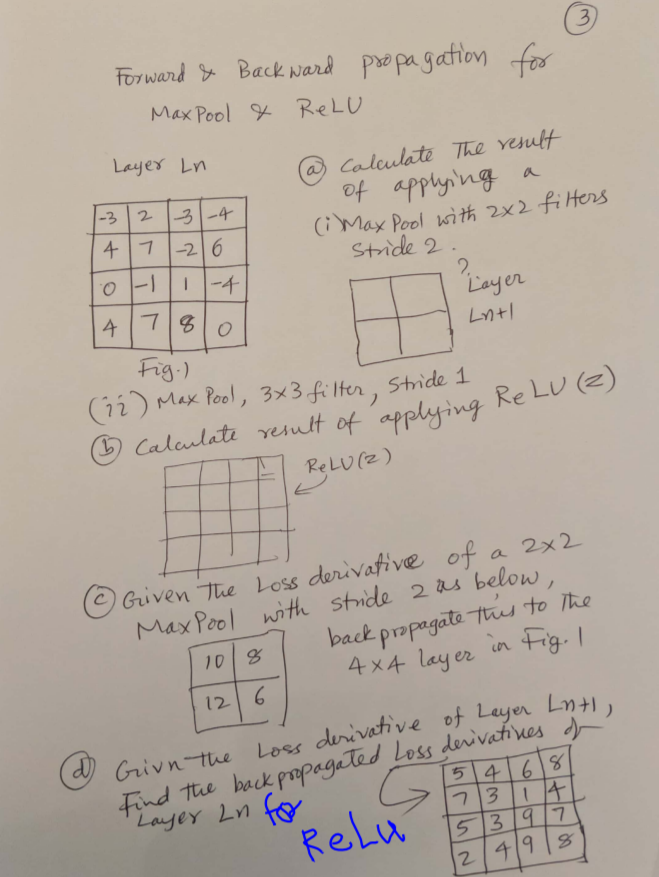 3
Forward & Backward propagation for
MaxPool & ReLU
Layer Ln
-3 2 -3 -4
4 7 -2 6
0 -1 1 -4
4 7 8 0
Fig.1
(a) Calculate The result
of applying a
(i) Max Pool with 2x2 filters
Stride 2.
?
Layer
Ln+1
(ii) Max Pool, 3x3 filter, Stride 1
(b) Calculate result of applying ReLU (z)
ReLU(z)
(c) Given The Loss derivative of a 2x2
MaxPool with stride 2 as below,
back propagate this to The
4x4 layer in Fig. 1
10 8
12 6
(d) Givn The Loss derivative of Layer Ln+1,
Find the backpropagated Loss derivatives of
Layer Ln for
ReLu
5 4 6 8
7 3 1 4
5 3 9 7
2 4 9 8